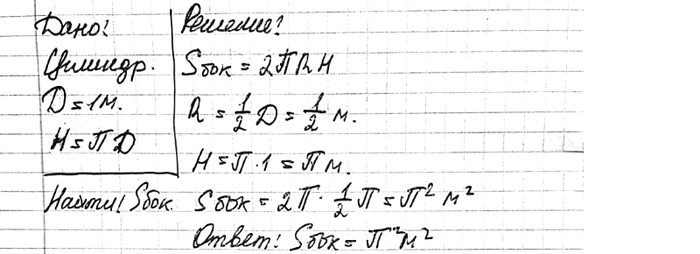 Дано:
Цилиндр.
D = 1м.
H = πD
Найти: Sбок.
Решение:
Sбок = 2πRH
R = 1/2 D = 1/2 м.
H = π·1 = π м.
Sбок = 2π · 1/2 π = π² м²
Ответ: Sбок = π² м²